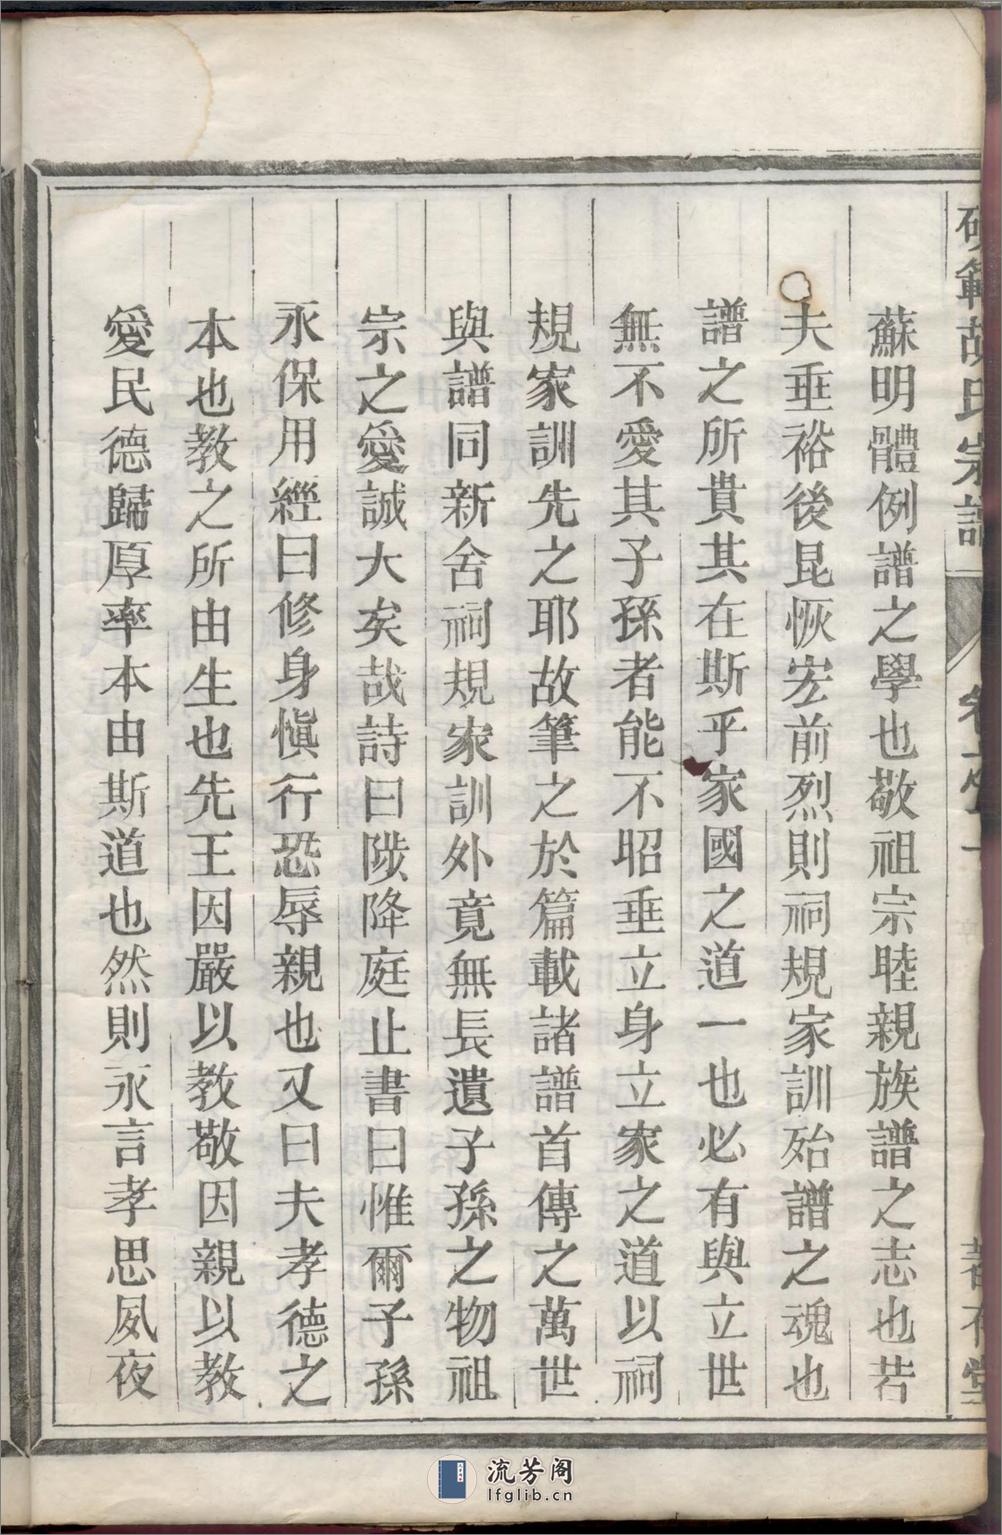 範胡氏宗譜
蘇明體例譜之學也敬祖宗睦親族譜之志也若
夫垂裕後昆恢宏前烈則祠規家訓殆譜之魂也
譜之所貴其在斯乎家國之道一也必有與立世
無不愛其子孫者能不昭垂立身立家之道以祠
規家訓先之耶故筆之於篇載諸譜首傳之萬世
與譜同新舍祠規家訓外竟無長遺子孫之物祖
宗之愛誠大矣哉詩曰陟降庭止書曰惟爾子孫
永保用經曰修身愼行恐辱親也又曰夫孝德之
本也教之所由生也先王因嚴以教敬因親以教
愛民德歸厚率本由斯道也然則永言孝思夙夜
流芳阁
lfglib.cn